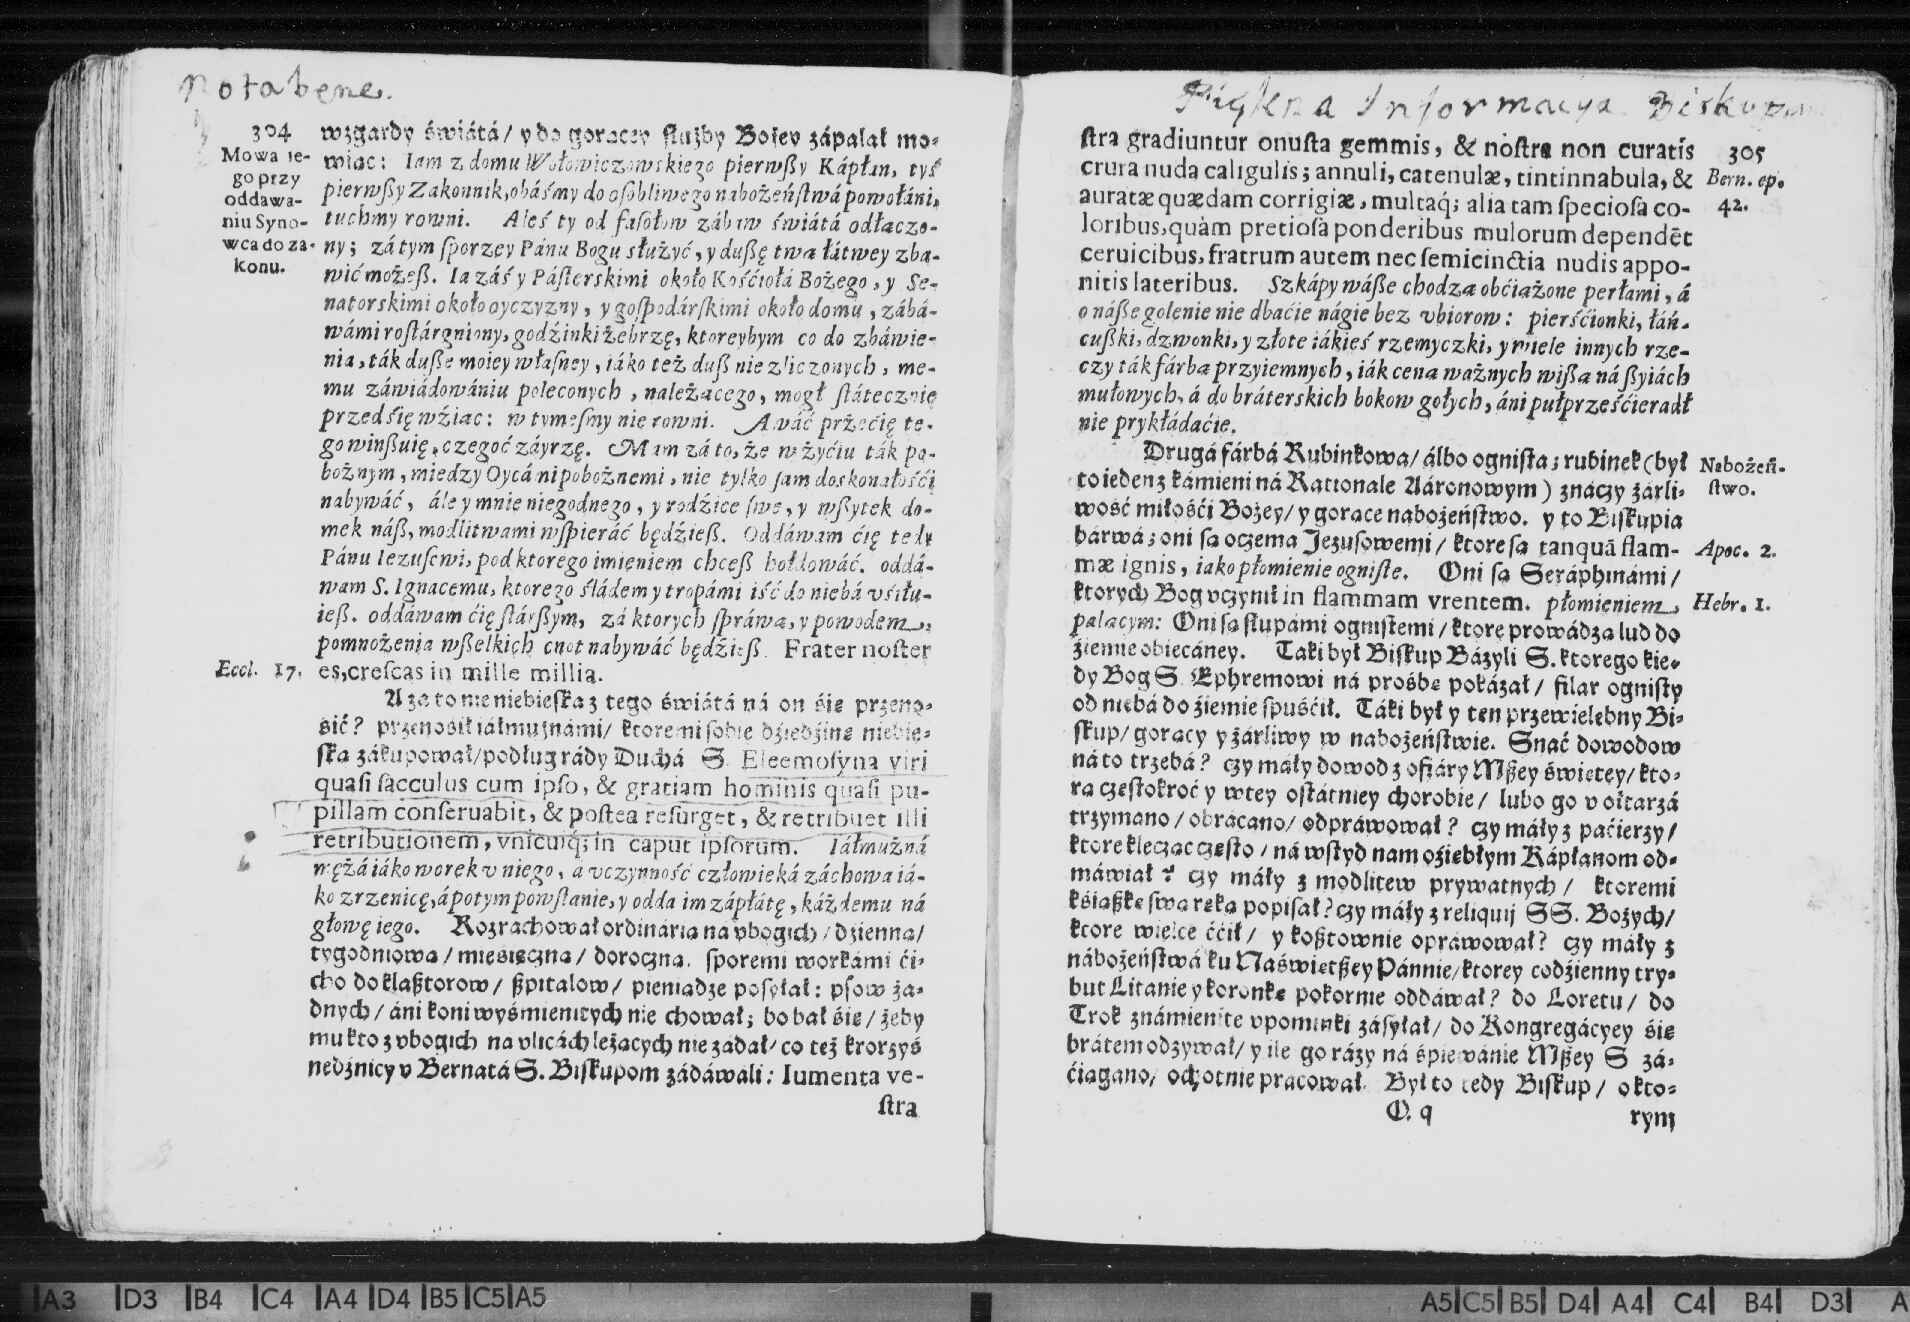 Notabene.
304
Mowa ie-
go przy
oddawa-
niu Syno-
wca do za-
konu.
wzgardy świátá / y do gorącey służby Bożey zápalał mo-
wiąc: Iam z domu Wołowiczowskiego pierwßy Kápłan, tyś
pierwßy Zakonnik, obáśmy do osobliwego nabożeństwá powołáni,
tuchmy rowni. Aleś ty od fasołow zábaw świátá odłączo-
ny; zátym sporzey Pánu Bogu służyć, y dußę twą łátwey zba-
wić możeß. Ia záś y Pásterskimi około Kośćiołá Bożego, y Se-
natorskimi około oyczyzny, y gospodárskimi około domu, zábá-
wámi rostárgniony, godźinki żebrzę, ktoreybym co do zbáwie-
nia, ták duße moiey własney, iáko też duß niezliczonych, me-
mu záwiádowániu poleconych, należącego, mogł státecznie
przedśię wźiąc: w tymesmy nie rowni. Awáć przećię te-
go winßuię, czegoć záyrzę. Mam zá to, że w żyćiu ták po-
bożnym, miedzy Oycámi pobożnemi, nie tylko sam doskonałośći
nabywáć, ále y mnie niegodnego, y rodźice swe, y wßytek do-
mek náß, modlitwami wspieráć będźieß. Oddáwam ćię tedy
Pánu Iezusowi, pod ktorego imieniem chceß hołdowáć. oddá-
wam S. Ignacemu, ktorego śládem y tropámi iść do niebá vśiłu-
ieß. oddáwam ćię stárßym, zá ktorych spráwą, y powodem,
pomnożenia wßelkich cnot nabywáć będźieß. Frater noster
Eccl. 17. es, crescas in mille millia.
A za to nie niebieská z tego świátá ná on śię przeno-
śić? przenośił iáłmużnámi / ktoremi sobie dźiedźinę niebie-
ską zákupował / podług rády Duchá S. Eleemosyna viri
quasi sacculus cum ipso, & gratiam hominis quasi pu-
pillam conseruabit, & postea resurget, & retribuet illi
retributionem, vnicuiq; in caput ipsorum. Iáłmużná
mężá iáko worek v niego, a vczynność człowieká záchowa iá-
ko zrzenicę, á potym powstanie, y odda im zápłátę, káżdemu ná
głowę iego. Rozrachował ordinária na vbogich / dzienna /
tygodniowa / mieśięczna / doroczna. sporemi workámi ći-
cho do klaßtorow / ßpitalow / pieniądze posyłał: psow żá-
dnych / áni koni wyśmienitych nie chował; bo bał śię / żeby
mu kto z vbogich na vlicách leżących nie zádał / co też ktorzyś
nedznicy v Bernatá S. Biskupom zádáwali: Iumenta ve-
stra
Piękna Informacya
305
Bern. ep.
42.
stra gradiuntur onusta gemmis, & nostra non curatis
crura nuda caligulis; annuli, catenulæ, tintinnabula, &
auratæ quædam corrigiæ, multaq; alia tam speciosa co-
loribus, quàm pretiosa ponderibus mulorum dependēt
ceruicibus, fratrum autem nec semicinctia nudis appo-
nitis lateribus. Szkápy wáße chodzą obćiążone perłami, á
o náße golenie nie dbaćie nágie bez vbiorow: pierśćionki, łáń-
cußki, dzwonki, y złote iákieś rzemyczki, y wiele innych rze-
czy ták fárbą przyiemnych, iák ceną ważnych wißa ná ßyiách
mułowych, á do bráterskich bokow gołych, áni pułprześćieradł
nie prykłádaćie.
Nabożeń-
stwo.
Drugá fárbá Rubinkowa / álbo ognista; rubinek (był
to ieden z kámieni ná Rationale Aáronowym) znáczy żárli-
wość miłośći Bożey / y gorące nabożeństwo. y to Biskupia
bárwá; oni są oczema Jezusowemi / ktore są tanquā flam-
Apoc. 2.
mæ ignis, iako płomienie ogniste. Oni są Seráphinámi /
ktorych Bog vczynił in flammam vrentem. płomieniem,
Hebr. 1.
palącym: Oni są słupámi ognistemi / ktore prowádzą lud do
źiemie obiecáney. Taki był Biskup Bázyli S. ktorego kie-
dy Bog S. Ephremowi ná prośbę pokázał / filar ognisty
od niebá do źiemie spuśćił. Táki był y ten przewielebny Bi-
skup / gorący y żárliwy w nabożeństwie. Snáć dowodow
ná to trzebá? czy máły dowod z ofiáry Mßey świętey / kto-
rą częstokroć y w tey ostátniey chorobie / lubo go v ołtarzá
trzymano / obrácano / odpráwował? czy máły z paćierzy /
ktore klęcząc często / ná wstyd nam oźiebłym Kápłanom od-
máwiał? czy máły z modlitew prywatnych / ktoremi
kśiąßkę swą ręką popisał? czy máły z reliquij SS. Bożych /
ktore wielce ććił / y koßtownie opráwował? czy máły z
nábożeństwá ku Naświętßey Pánnie / ktorey codźienny try-
but Litanie y koronkę pokornie oddáwał? do Loretu / do
Trok známienite vpominki zásyłał / do Kongregácyey śię
brátem odzywał / y ile go rázy ná śpiewánie Mßey S. zá-
ćiągano / ochotnie pracował. Był to tedy Biskup / o kto-
O. q rym
A3 D3 B4 C4 A4 D4 B5 C5 A5
A5 C5 B5 D4 A4 C4 B4 D3 A